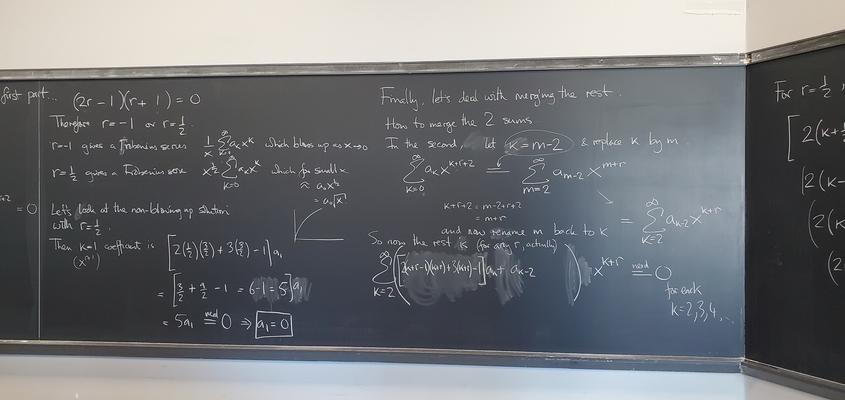 first part...
(2r-1)(r+1)=0
Therefore r=-1 or r=1/2
r=-1 gives a Frobenius series 1/x ∑_{k=0}^{∞} a_k x^k which blows up as x→0
r=1/2 gives a Frobenius series x^{1/2} ∑_{k=0}^{∞} a_k x^k which for small x
≈ a_0 x^{1/2}
= a_0 √x
Let's look at the non-blowing up solution
with r=1/2.
Then k=1 coefficient is [2(1/2)(3/2)+3(3/2)-1]a_1
(x^{r+1})
= [3/2 + 9/2 - 1 = 6-1=5]a_1
= 5a_1 need= 0 ⇒ a_1=0
= 0
Finally, let's deal with merging the rest.
How to merge the 2 sums
In the second, let k=m-2 & replace k by m.
∑_{k=0}^{∞} a_k x^{k+r+2} = ∑_{m=2}^{∞} a_{m-2} x^{m+r}
k+r+2 = m-2+r+2
= m+r
= ∑_{k=2}^{∞} a_{k-2} x^{k+r}
and now rename m back to k
So now the rest is (for any r, actually)
∑_{k=2}^{∞} ([2(k+r-1)(k+r)+3(k+r)-1]a_k + a_{k-2}) x^{k+r} need= 0
for each
k=2,3,4,...
For r=1/2,
[2(k+1/2
(2(k-
(2(k
(2